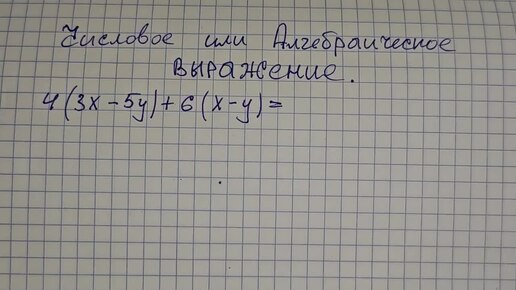 Числовое или Алгебраическое
выражение.
4(3x-5y)+6(x-y)=